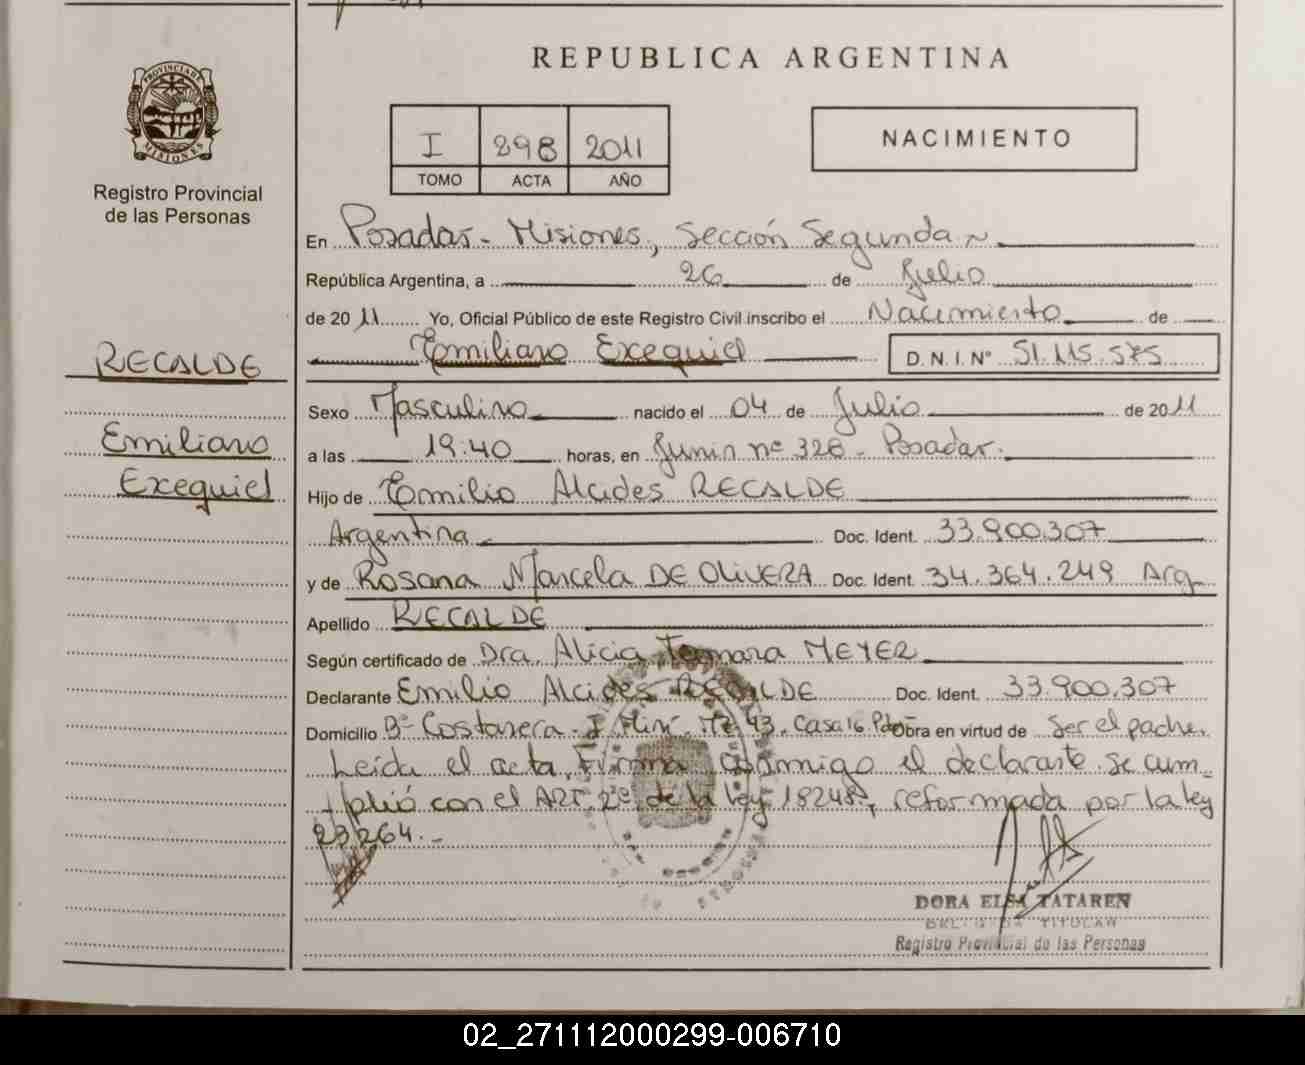 REPUBLICA ARGENTINA
PROVINCIA DE
MISIONES
Registro Provincial
de las Personas
I 298 2011
TOMO ACTA AÑO
NACIMIENTO
En Posadas - Misiones, Sección Segunda
República Argentina, a 26 de Julio
de 2011 Yo, Oficial Público de este Registro Civil inscribo el Nacimiento de
Emiliano Exequiel D.N.I. Nº 51.115.575
RECALDE
Emiliano
Exequiel
Sexo Masculino nacido el 04 de Julio de 2011
a las 19:40 horas, en Junin nº 328 - Posadas.
Hijo de Emilio Alcides RECALDE
Argentina Doc. Ident. 33.900.307
y de Rosana Marcela DE OLIVERA Doc. Ident. 34.364.249 Arg.
Apellido RECALDE
Según certificado de Dra. Alicia Tamara MEYER
Declarante Emilio Alcides RECALDE Doc. Ident. 33.900.307
Domicilio Bº Costanera - I Mz 43. Casa 16 Obra en virtud de Ser el padre.
Leída el acta, Firma conmigo el declarante. Se cum-
plió con el ART. 2º de la ley 18248, reformada por la ley
23264.-
DORA ELSA TATAREN
DELEGADA TITULAR
Registro Provincial de las Personas
02_271112000299-006710